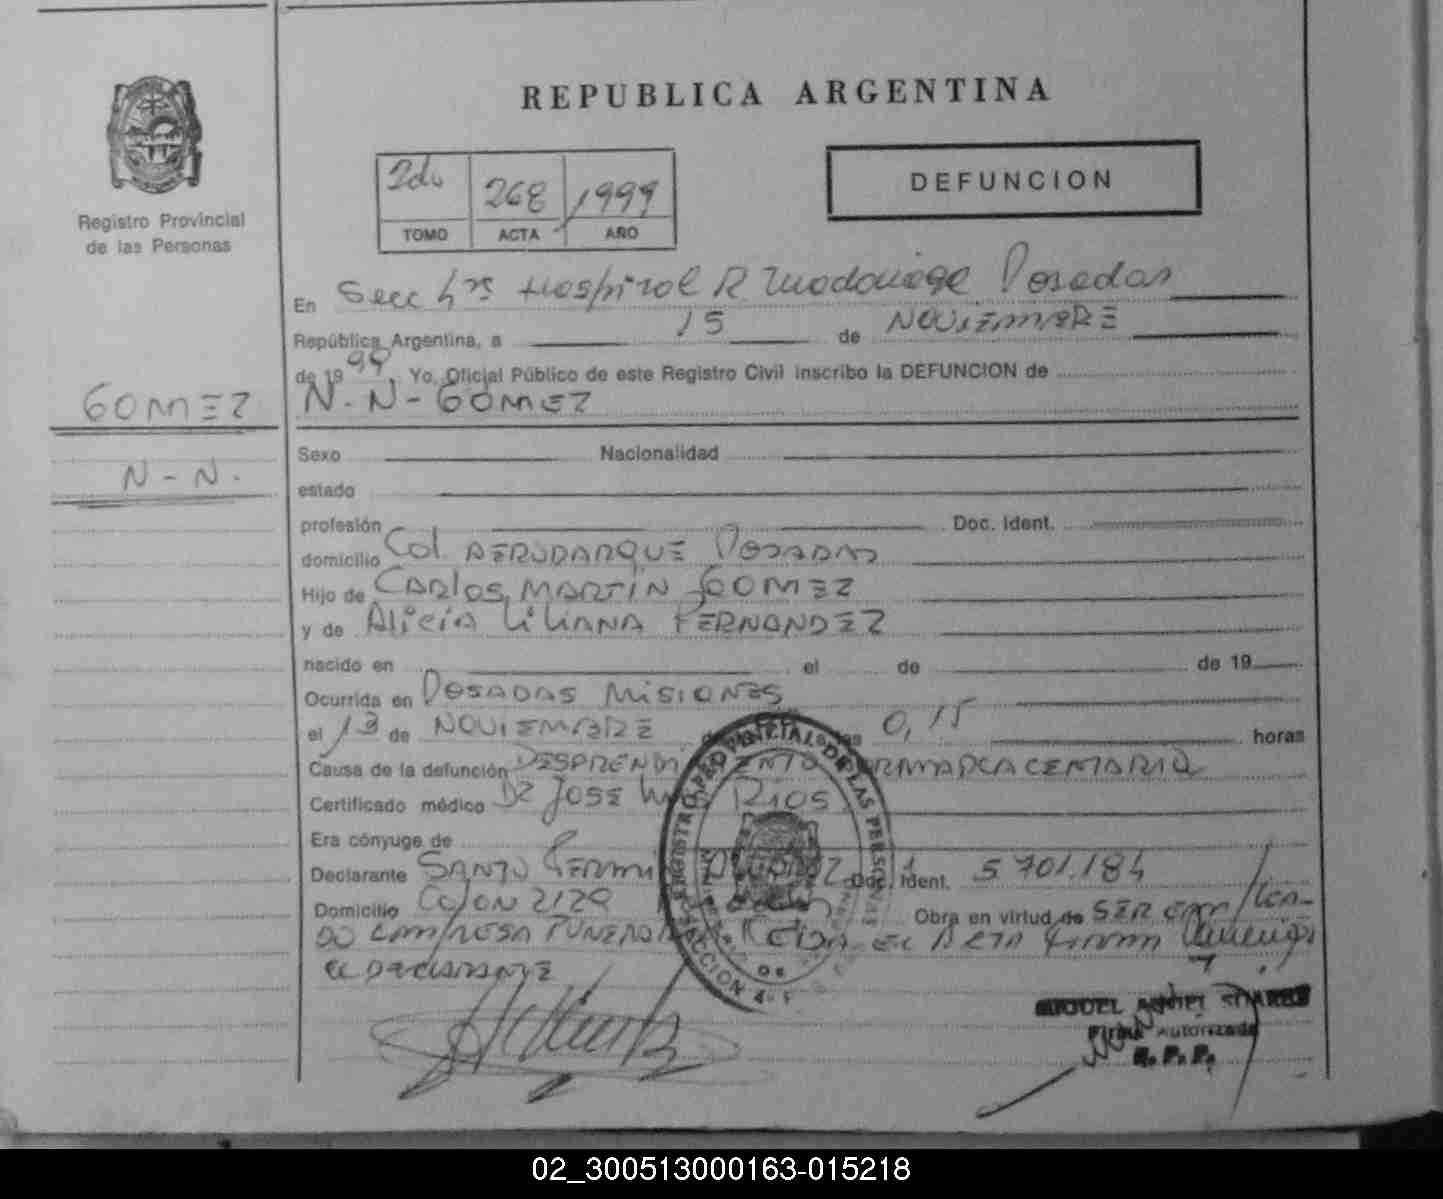 REPUBLICA ARGENTINA
Registro Provincial
de las Personas
2do 268 1999
TOMO ACTA AÑO
DEFUNCION
En Secc Hospital R Madariaga Posadas
República Argentina, a 15 de NOVIEMBRE
de 1999 Yo, Oficial Público de este Registro Civil inscribo la DEFUNCION de
N.N-GOMEZ
GOMEZ
N-N.
Sexo Nacionalidad
estado
profesión Doc. Ident.
domicilio Col. AEROPARQUE POSADAS
Hijo de CARlos MARTÍN GOMEZ
y de AliciA LiliANA FERNANDEZ
nacido en el de de 19
Ocurrida en POSADAS MiSIONES
el 13 de NOVIEMBRE 0,15 horas
Causa de la defunción DESPRENDIMIENTO NORMOPLACENTARIO
Certificado médico Dr JOSE Luis Rios
Era cónyuge de
Declarante SANTO Doc. Ident. 5 701.184
Domicilio COLON 2129 Obra en virtud de SER
DO EMPRESA FUNERARIA EL ACTA FIRMA
el DECLARANTE
REGISTRO PROVINCIAL DE LAS PERSONAS
SECCION 4
MIGUEL SUAREZ
Firma Autorizada
R. P. P.
02_300513000163-015218